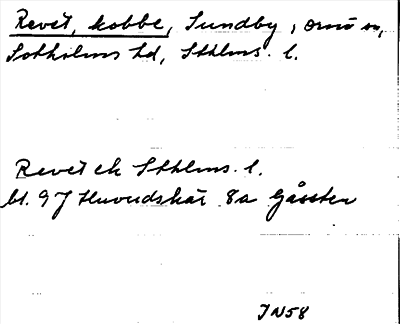 Revet, kobbe, Sundby, Ornö sn,
Sotholms hd, Sthlms. l.
Revet ek Sthlms. l.
bl. 9 J Huvudskär 8a Gåssten
JN58